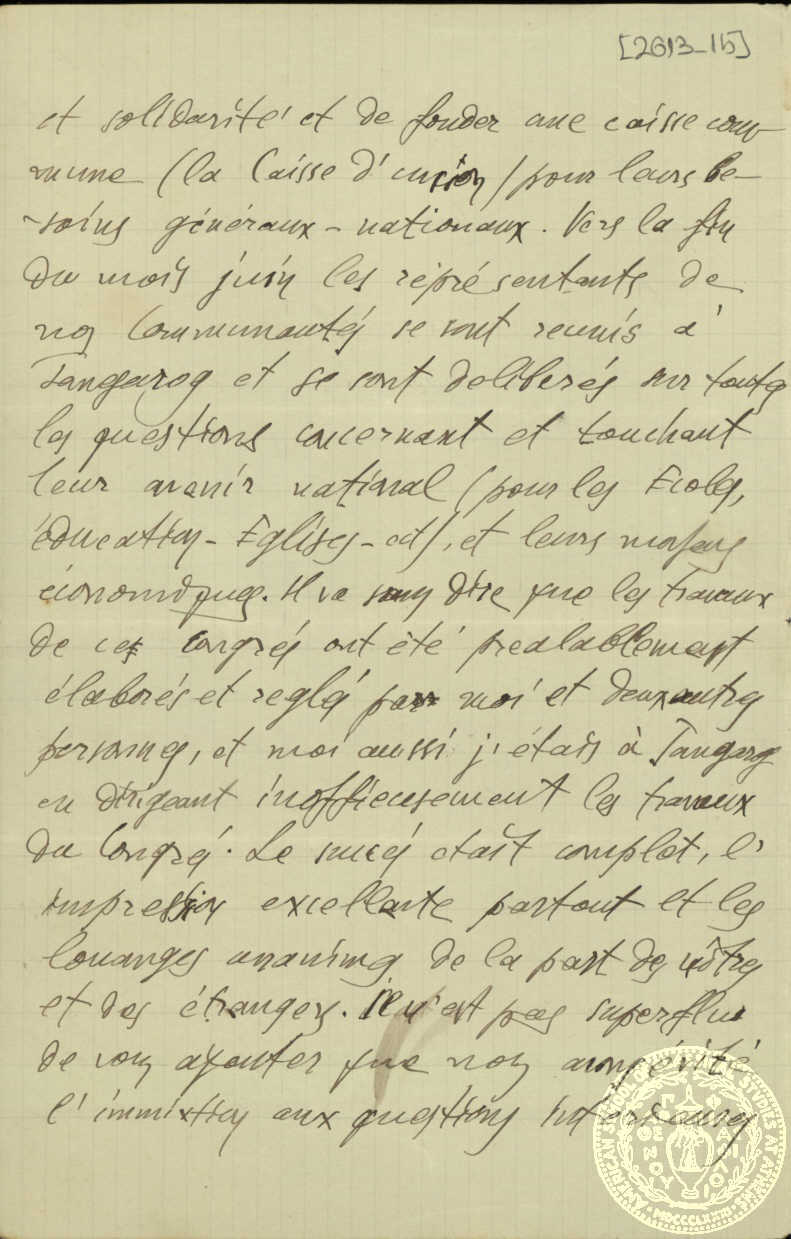 [2613-1b]
et solidarité et de fonder une caisse com-
mune (la Caisse d'union) pour leurs be-
soins généraux-nationaux. Vers la fin
du mois juin les représentants de
nos Communautés se sont reunis à
Tangarog et se sont deliberés sur toutes
les questions concernant et touchant
leur avenir national (pour les Ecoles,
éducation - Eglises - etc), et leurs moyens
économiques. Il va sans dire que les travaux
de ces congrés ont été prealablement
élaborés et reglés par moi et deux autres
personnes, et moi aussi j'étais à Tangarog
en dirigeant inofficeusement les travaux
du Congrés. Le succés etait complet, l'
impression excellente partout et les
louanges unanimes de la part des nôtres
et des étrangers. Il n'est pas superflue
de vous ajouter que nous avons évité
l'immixtion aux questions interieures
AMERICAN SCHOOL OF CLASSICAL STUDIES AT ATHENS
MDCCCLXXXI